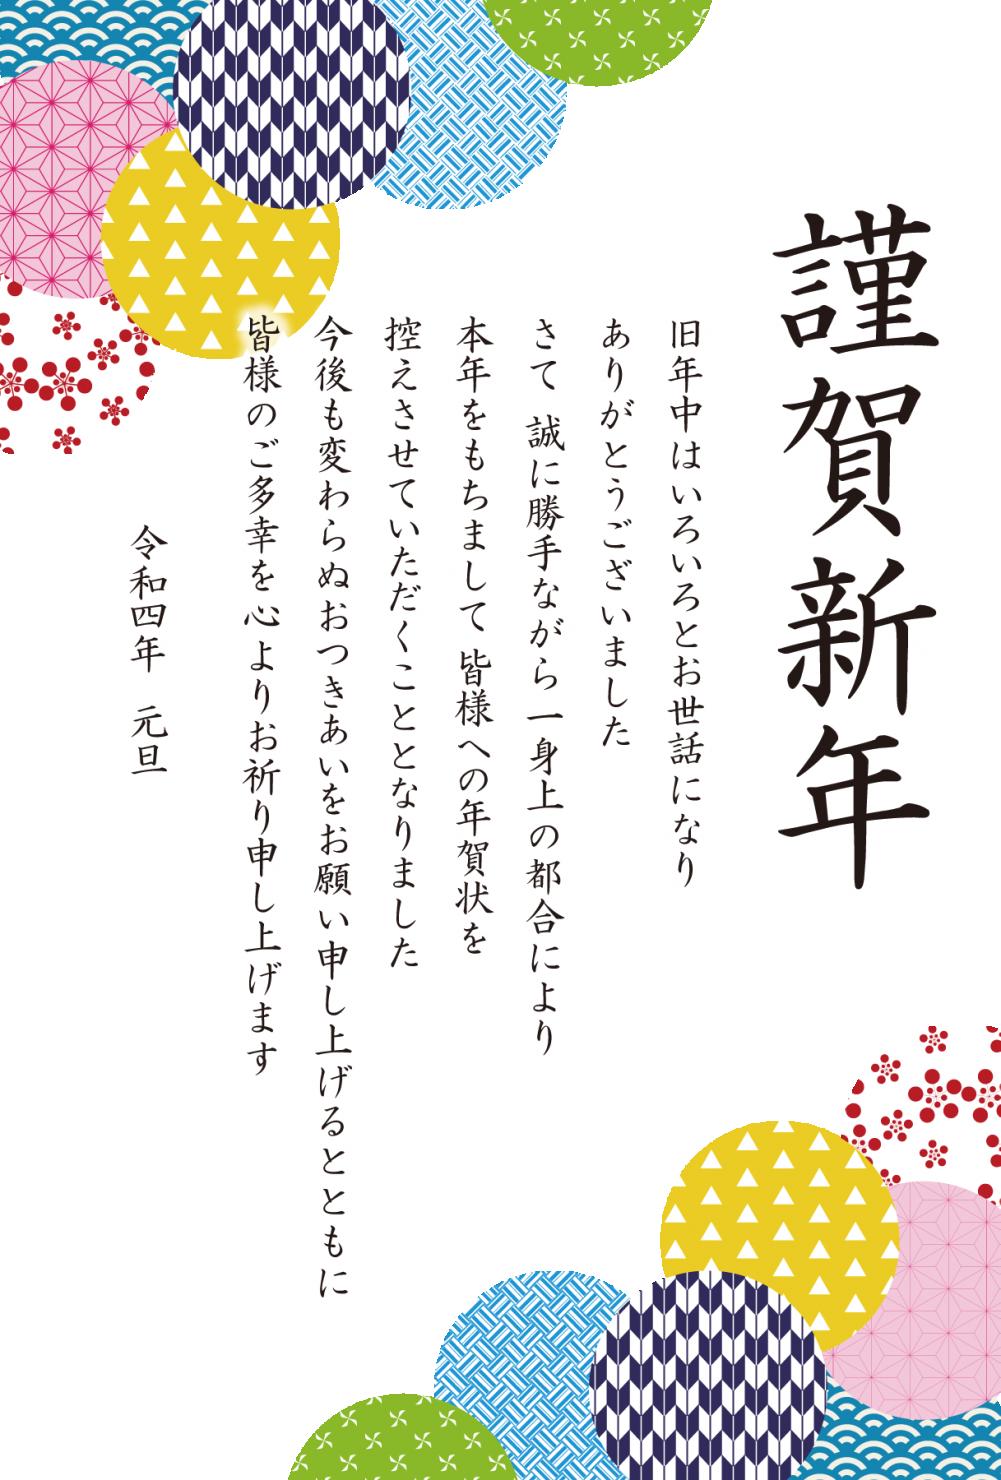 謹賀新年
旧年中はいろいろとお世話になり
ありがとうございました
さて 誠に勝手ながら一身上の都合により
本年をもちまして 皆様への年賀状を
控えさせていただくこととなりました
今後も変わらぬおつきあいをお願い申し上げるとともに
皆様のご多幸を心よりお祈り申し上げます
令和四年 元旦